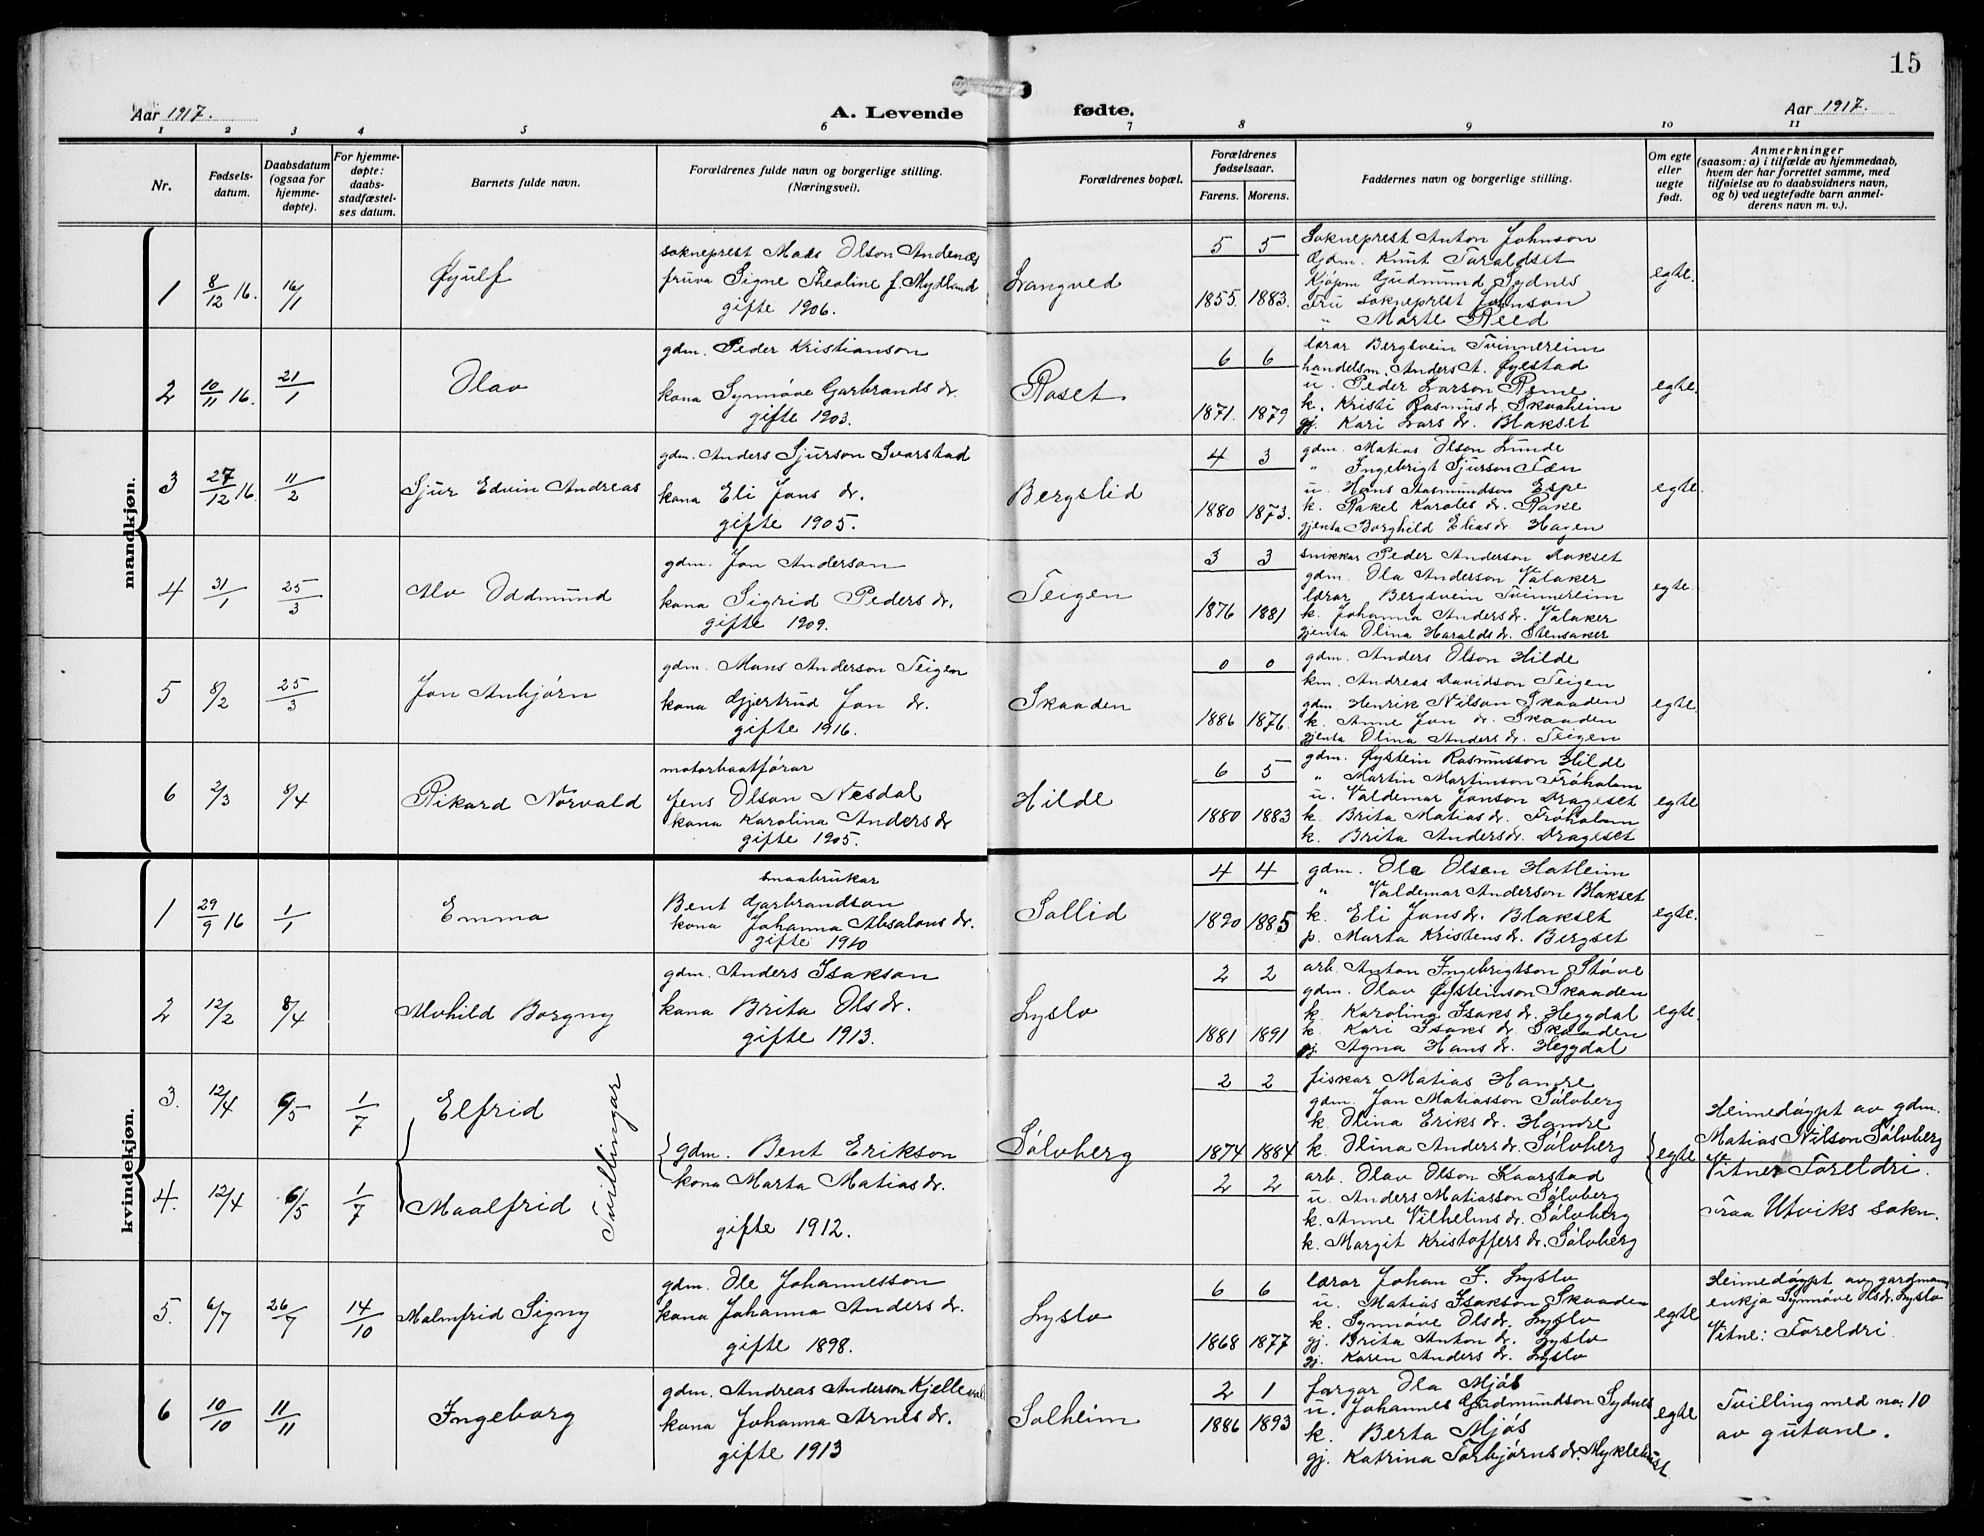 15
Aar 1917.
A. Levende
fødte.
Aar 1917.
1 2 3 4 5 6 7 8 9 10 11
Nr.
Fødsels-
datum.
Daabsdatum
(ogsaa for
hjemme-
døpte).
For hjemme-
døpte:
daabs-
stadfæstel-
ses datum.
Barnets fulde navn.
Forældrenes fulde navn og borgerlige stilling.
(Næringsvei).
Forældrenes bopæl.
Forældrenes
fødselsaar.
Farens. Morens.
Faddernes navn og borgerlige stilling.
Om egte
eller
uegte
født.
Anmerkninger
(saasom: a) i tilfælde av hjemmedaab,
hvem der har forrettet samme, med
tilføielse av to daabsvidners navn,
og b) ved uegtefødte barn anmel-
derens navn m. v.).
mandkjøn.
1 8/12 16. 16/1 Øyulf
sokneprest Mads Olson Andenæs
fruva Signe Theoline f. Mydland
gifte 1906.
Langved
5 5
1855. 1883.
Sokneprest Anton Johnson
Gdm. Knut Taraldset
Kjøpm Gudmund Sydnes
Fru sokneprest Johnson
" Marte Reed
egte.
2 10/11 16. 21/1 Olav
gdm. Peder Kristianson
kona Synnøve Garbrands dr.
gifte 1903.
Roset.
6 6
1871. 1879
lærar Bergsvein Tvinnereim
handelsm. Anders A. Øyestad
u. Peder Larson Reme
k. Kristi Rasmus dr. Skaaheim
gj. Kari Lars dr. Blakset
egte.
3 27/12 16 11/2 Sjur Edvin Andreas
gdm. Anders Sjurson Svarstad
kona Eli Jons dr.
gifte 1905.
Bergslid
4 3
1880 1873.
gdm. Matias Olson Lunde
" Ingebrigt Sjurson Tæn
u. Hans Aasmundson Espe
k. Rakel Karoles dr. Rake
gjenta Borghild Elias dr Hagen
egte.
4 31/1 25/3 Alv Oddmund
gdm. Jon Anderson
kona Sigrid Peders dr.
gifte 1909.
Teigen
3 3
1876 1881
snikkar Peder Anderson Lokset
gdm. Ola Anderson Valaker
lærar Bergsvein Tvinnereim
k. Johanna Anders dr. Valaker
gjenta Olina Haralds dr. Stensaker
egte.
5 8/2 25/3 Jon Anbjørn
gdm. Mons Anderson Teigen
kona Gjertrud Jon dr.
gifte 1916.
Skaaden
0 0
1886 1876.
gdm. Anders Olson Hilde
km. Andreas Davidson Teigen
gdm. Henrik Nilson Skaaden
k. Anne Jon dr. Skaaden
gjenta Olina Anders dr. Teigen
egte.
6 2/3 8/4 Rikard Norvald
motorbaatførar
Jens Olson Nesdal
kona Karolina Anders dr
gifte 1905.
Hilde
6 5
1880 1883
gdm. Øystein Rasmusson Hilde
" Martin Martinson Frøholm
u. Valdemar Jonson Drageset
k. Brita Matias dr. Frøholm
k. Brita Anders dr. Drageset
egte
kvindekjøn.
1 29/9 16 1/1 Emma
smaabrukar
Bent Garbrandson
kona Johanna Absalons dr.
gifte 1910
Sollid
4 4
1890 1885
gdm. Ole Olsen Hatleim
" Valdemar Anderson Blakset
k. Eli Jons dr. Blakset
p. Marta Kristens dr. Bergset
egte.
2 12/2 8/4 Alvhild Borgny
gdm. Anders Isakson
kona Brita Ols dr.
gifte 1913.
Lyslo
2 2
1881 1891
arb. Anton Ingebrigtson Støve
gdm. Olav Øysteinson Skaaden
k. Karolina Isaks dr. Heggdal
k. Kari Isaks dr. Skaaden
gj. Agna Hans dr. Heggdal
egte.
3. 12/4 6/5 1/7 Elfrid
Tvillingar
gdm. Bent Erikson
kona Marta Matias dr.
gifte 1912.
Sølvberg
2 2
1874 1884
fiskar Matias Hamre
gdm. Jon Matiasson Sølvberg
k. Olina Eriks dr. Hamre
k. Olina Anders dr. Sølvberg
egte
Heimedøypt av gdm.
Matias Nilson Sølvberg
Vitner Foreldri.
4. 12/4 6/5 1/7 Maalfrid
2 2
arb. Olav Olson Kaarstad
u. Anders Matiasson Sølvberg
k. Anne Vilhelms dr. Sølvberg
k. Margit Kristoffers dr. Sølvberg
Fraa Utviks sokn.
5. 6/7 26/7 14/10 Malmfrid Signy
gdm. Ole Johannesson
kona Johanna Anders dr.
gifte 1898.
Lyslo
6 6
1868 1877
lærar Johan F. Lyslo
u. Matias Isakson Skaaden
k. Synnøve Ols dr. Lyslo
gj. Brita Anton dr. Lyslo
gj. Karen Anders dr. Lyslo
egte
Heimedøypt av gardmann
enkja Synnøve Ols dr. Lyslo
Vitne: Foreldri.
6 10/10 11/11 Ingeborg
gdm. Andreas Anderson Kjellevol
kona Johanna Arnes dr.
gifte 1913
Solheim
2 1
1886 1893
fargar Ola Mjøs
u. Johannes Gudmundson Sydnes
k. Berta Mjøs
gj. Katrina Torbjørns dr. Myklebust
egte
Tvilling med no. 10
av gutane.